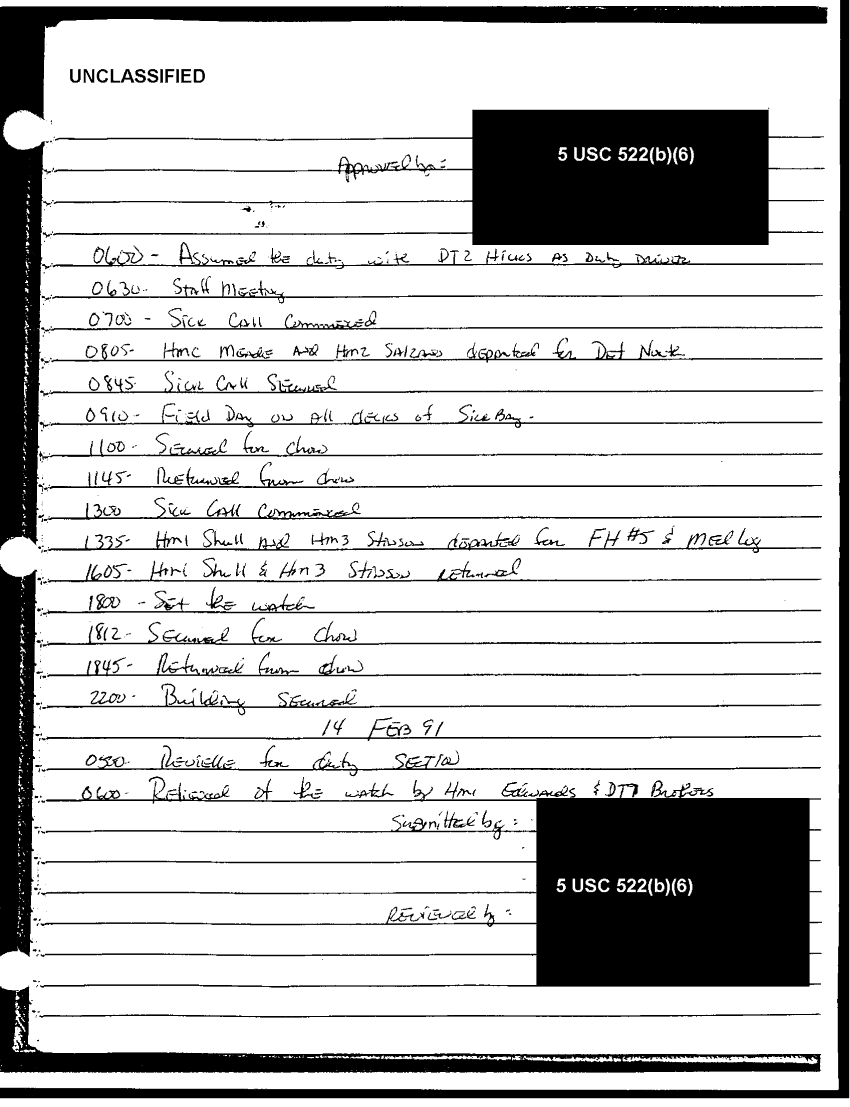 UNCLASSIFIED
5 USC 522(b)(6)
Approved by:
0600 - Assumed the duty with DT2 Hicks As Duty Driver
0630- Staff Meeting
0700 - Sick Call Commenced
0805- HMC Meade And HM2 departed for Det
0845 Sick Call Secured
0910- Field Day on All decks of Sick Bay-
1100- Secured for chow
1145- Returned from chow
1300 Sick Call Commenced
1335- HM1 Shull And HM3 Stinson departed for FH #5 & Med log
1605- HM1 Shull & HM3 Stinson returned
1800 - Set the watch
1812- Secured for Chow
1845- Returned from chow
2200- Building Secured
14 FEB 91
0530- Revielle for duty
0600- Relieved of the watch by HM1 Edwards &
Submitted by:
5 USC 522(b)(6)
Reviewed by: